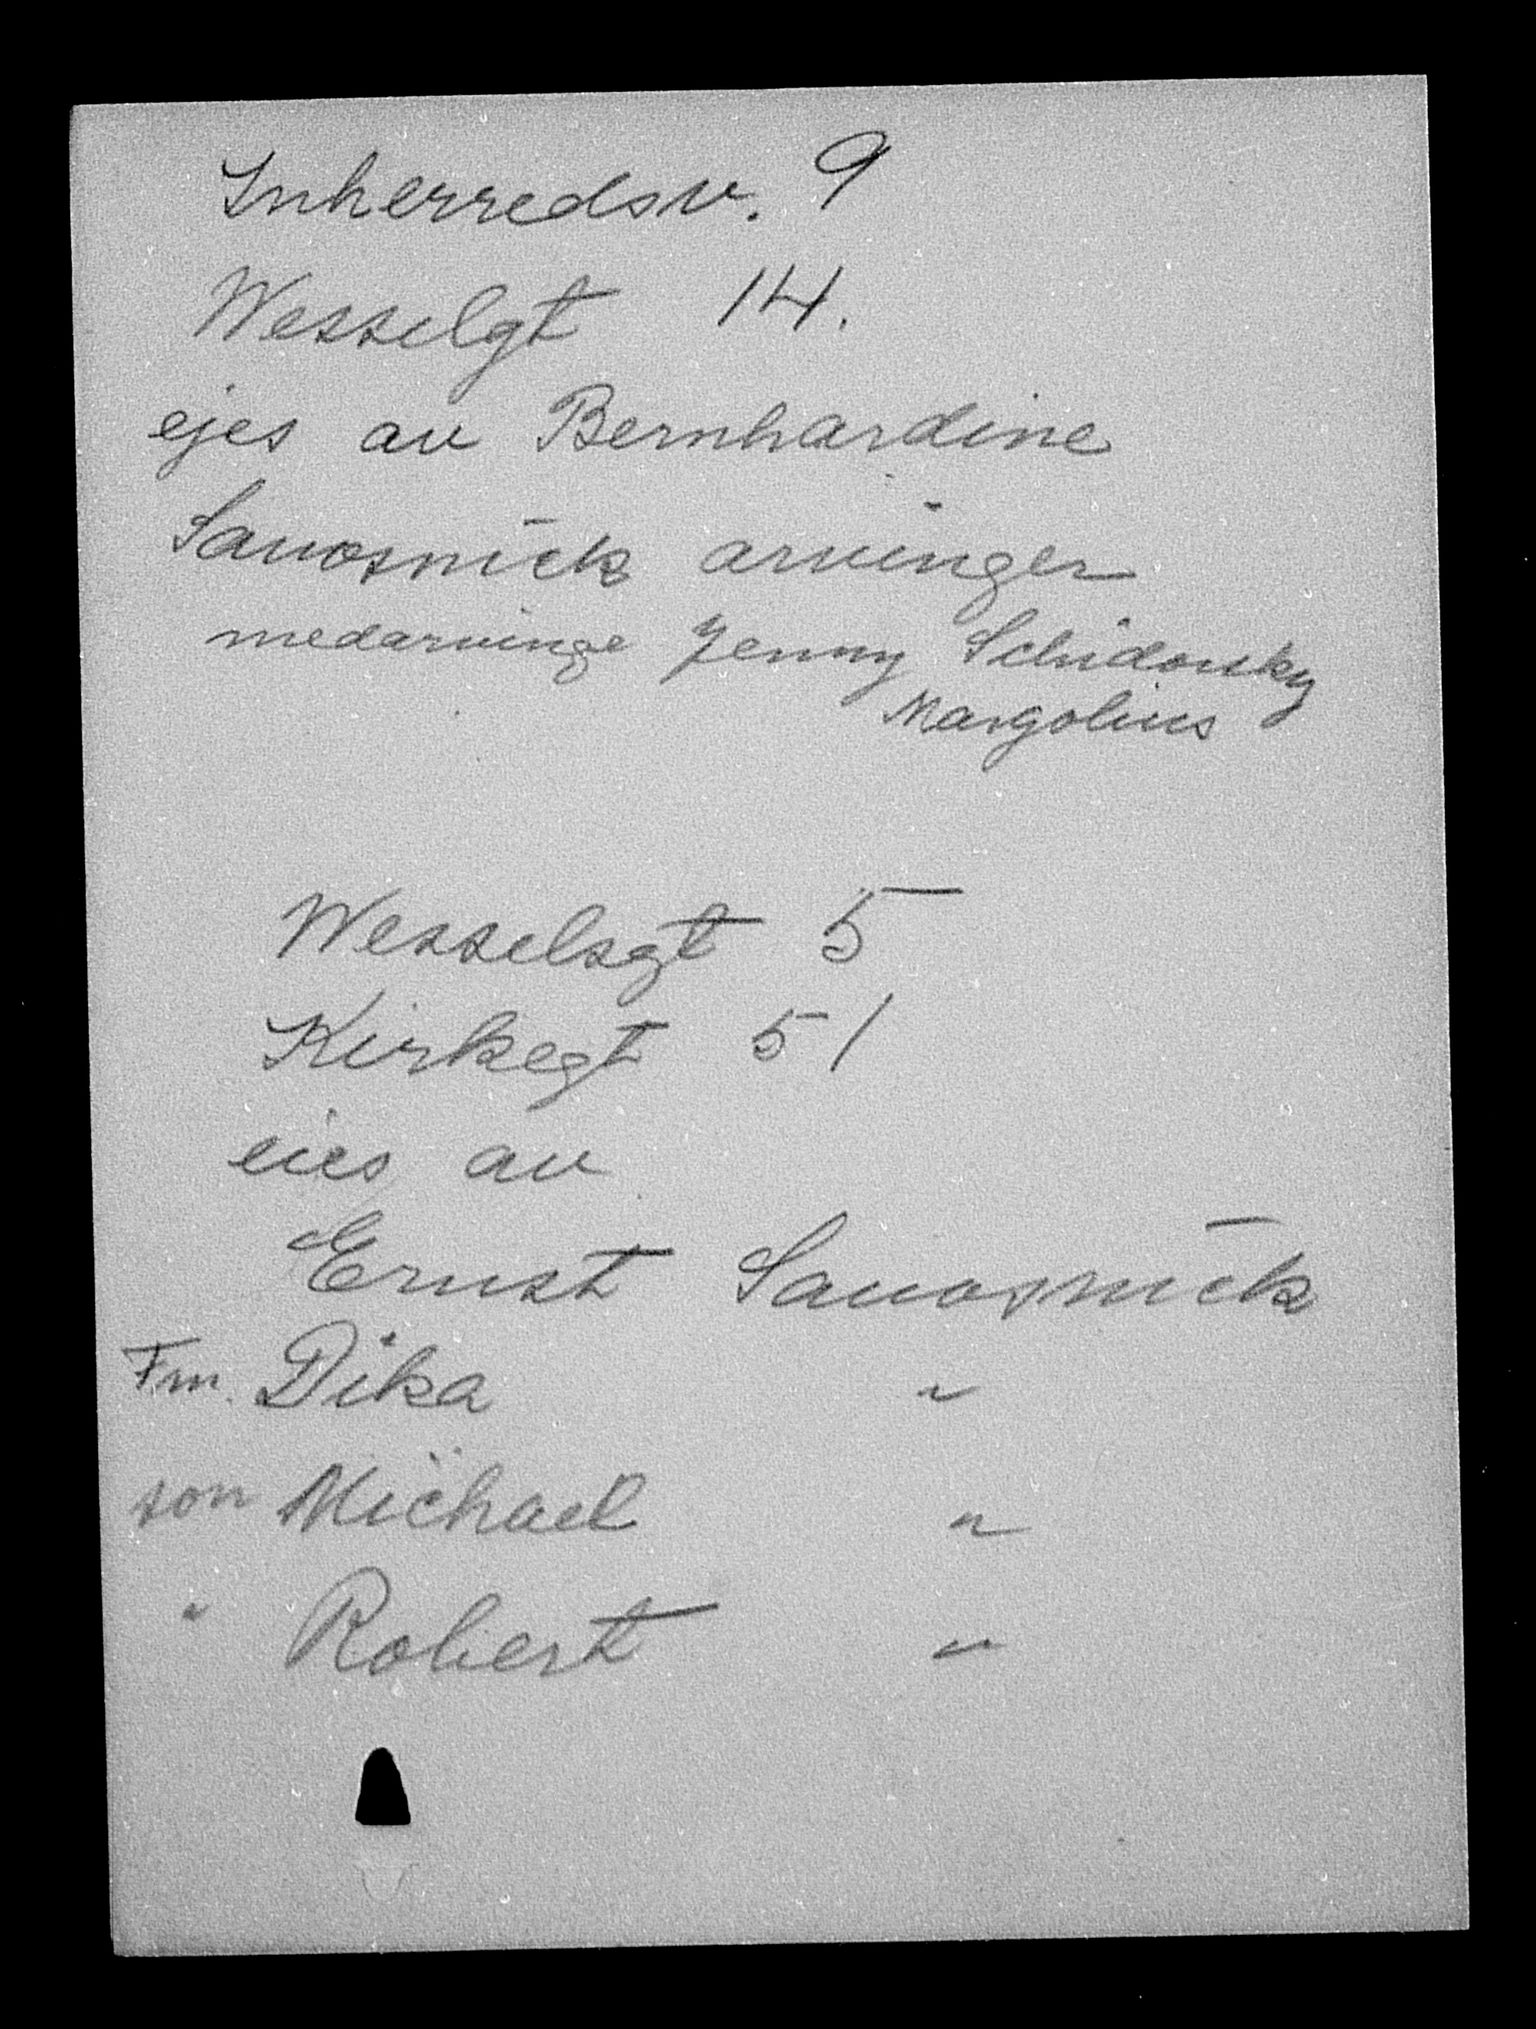 Inherredsv. 9
Wesselgt 14.
ejes av Bernhardine
Savosnick arvinger
medarvinge Jenny Schidovsky
Margolius
Wesselsgt 5
Kirkegt 51
eies av
Ernst Savosnick
Frn. Dika "
søn Michael "
" Robert "